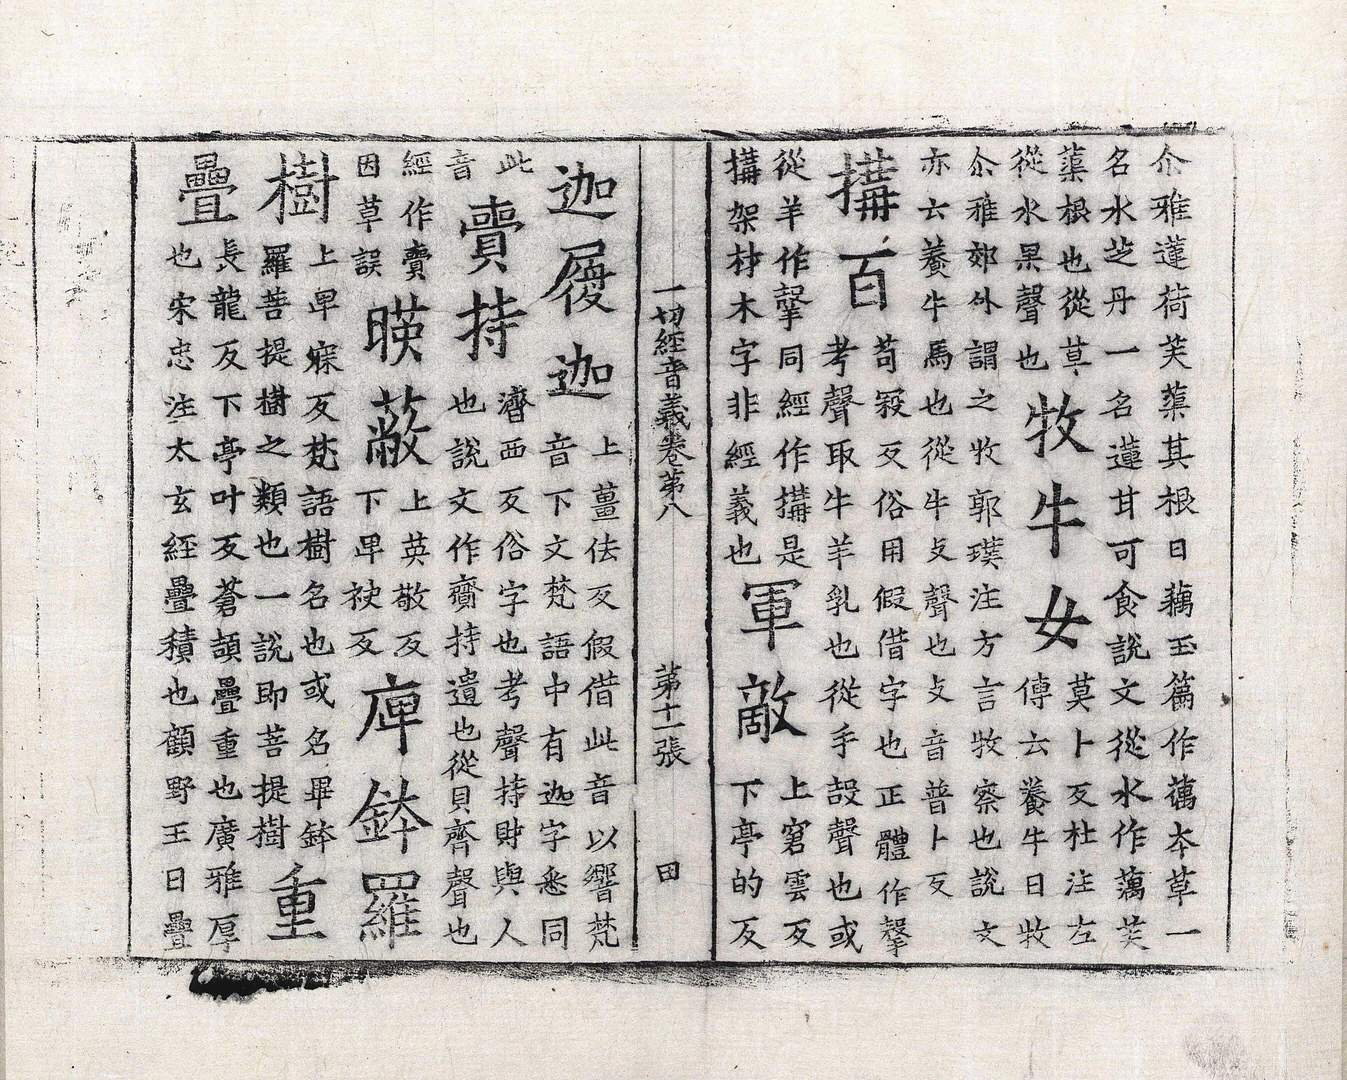 尒雅蓮荷芙蕖其根曰藕玉篇作蕅夲草一
名水芝丹一名蓮甘可食說文從水作蕅芙
蕖根也從草
從水果聲也
牧牛女
莫卜反杜注左
傳云養牛曰牧
尒雅郊外謂之牧郭璞注方言牧察也說文
亦云養牛馬也從牛攴聲也攴音普卜反
搆百
苟反俗用假借字也正體作
考聲取牛羊乳也從手聲也或
從羊作同經作搆是
搆架材木字非經義也
軍敵
上窘雲反
下亭的反
一切經音義卷第八 第十一張 田
迦履迦
上薑佉反假借此音以響梵
音下文梵語中有迦字悉同
此
音
賷持
濟西反俗字也考聲持財與人
也說文作齎持遺也從貝齊聲也
經作賷
因草誤
暎蔽
上英敬反
下卑袂反
庳鉢羅
樹
上卑寐反梵語樹名也或名畢鉢
羅菩提樹之類也一說即菩提樹
重
疊
長龍反下亭叶反蒼頡疊重也廣雅厚
也宋忠注太玄經疊積也顧野王曰疊